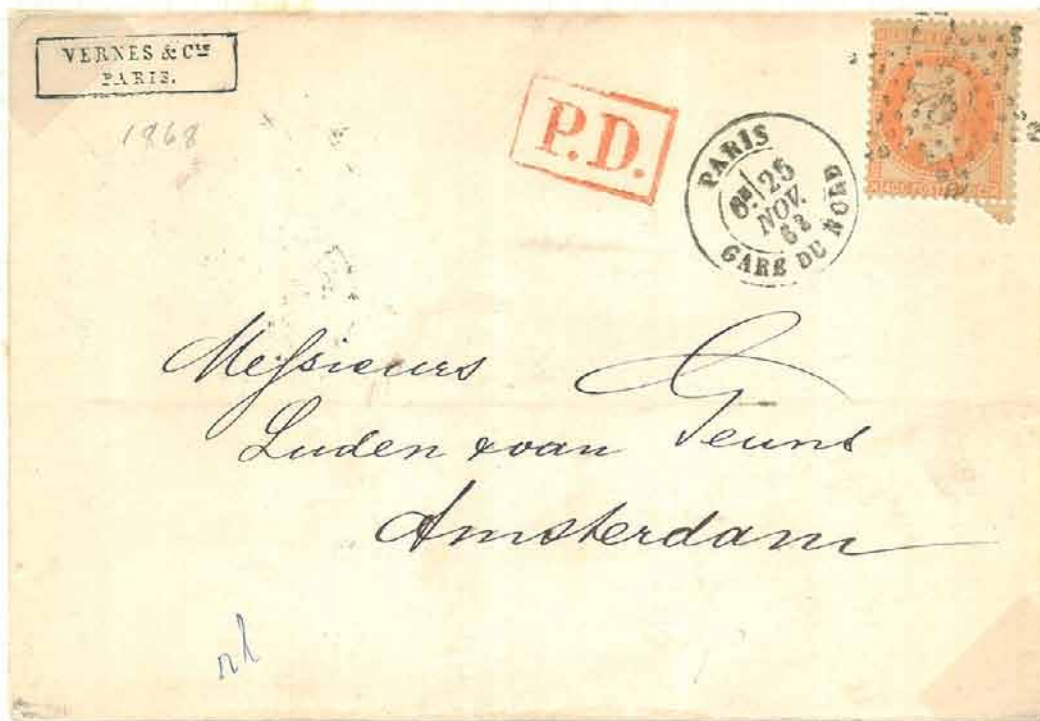 VERNES & CIE
PARIS.
1868
P.D.
PARIS
6E 25
NOV.
68
GARE DU NORD
Messieurs
Luden & van Geuns
Amsterdam
nl